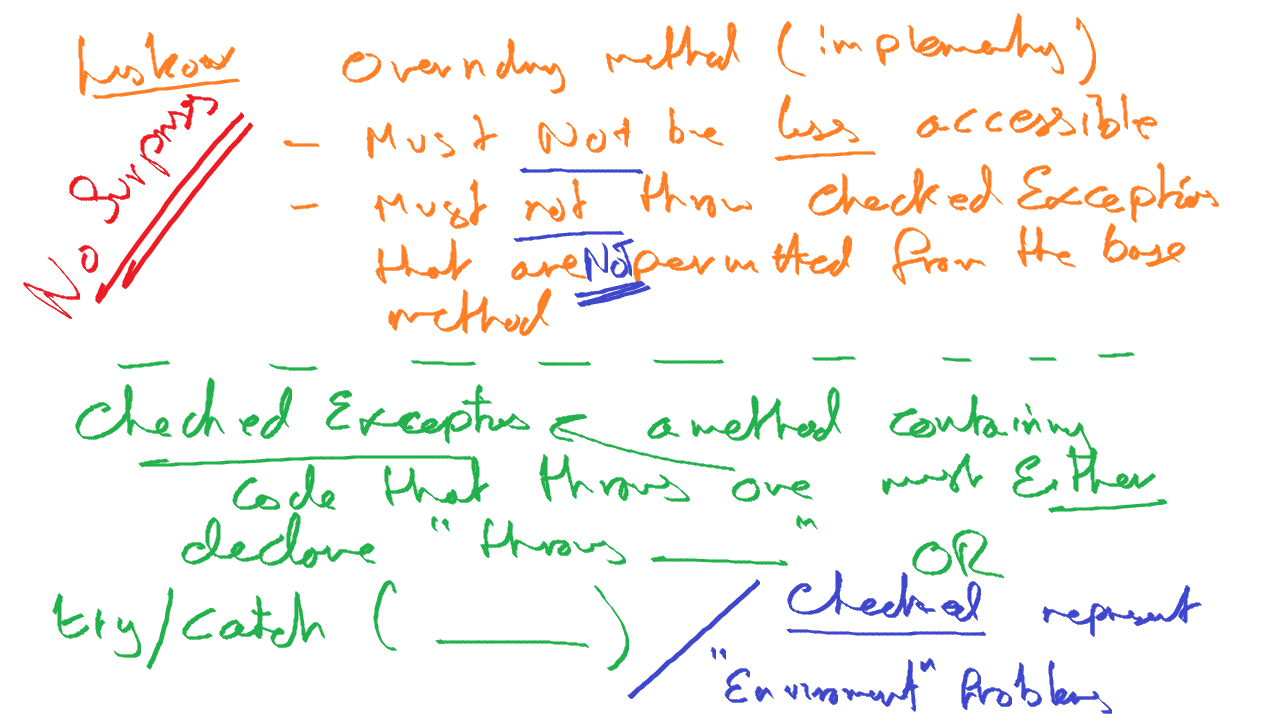 Liskov Overriding method (implementing)
No Surprises
- Must Not be less accessible
- Must not throw checked Exceptions
that are NOT permitted from the base
method
Checked Exceptions < a method containing
code that throws one must Either
declare "throws ____" OR
try/catch ( ____ )
Checked represent
"Enviroment" Problems